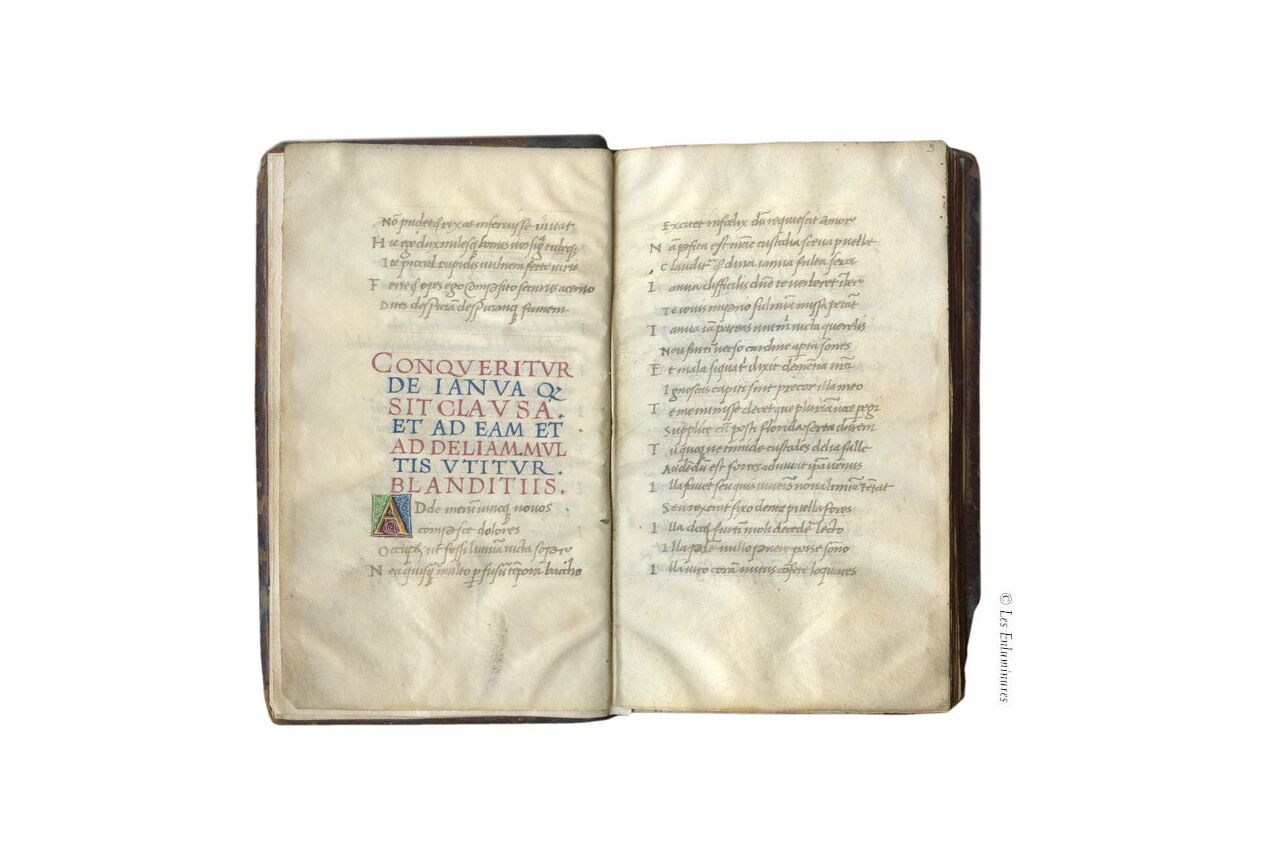 Nō pudet & rixas inseruisse iuuat
Hic ego dux milesq; bonus uos sigā tubeq;
Ite procul cupidis uulnera ferte uiris
Ferte & opes ego cōposito securus aceruo
Dites despiciā despiciāq; famem
CONQVERITVR
DE IANVA Q
SIT CLAVSA.
ET AD EAM ET
AD DELIAM. MVL
TIS VTITVR.
BLANDITIIS.
ADde merū uinoq; nouos
compesce dolores
Occupet ut fessi lumina uicta sopor
Neu quisq̄ multo pfusū tēpora baccho
3
Excitet infoelix dū requiescit amor
Nā posita est nr̄ae custodia sceua puelle
Clauditur & dura ianua fulta sera
Ianua difficilis dn̄e te uerberet iber
Te iouis imperio fulmina missa petāt
Ianua iā pateas uni mihi uicta querelis
Neu furtim uerso cardine aperta sones
Et mala siqua tibi dixit dementia nr̄a
Ignoscas capiti sint precor illa meo
Te meminisse decet que plurima uoce peregi
Supplice cū posti florida serta darem
Tu quoque ne timide custodes delia falle
Audēdū est fortes adiuuat ipsa uenus
Illa fauet seu quis iuuenis noua limina tētat
Seu reserat fixo dente puella fores
Illa docet furtim molli decedere lecto
Illa pedem nullo ponere posse sono
Illa uiro corā nutus cōferre loquaces
© Les Enluminures